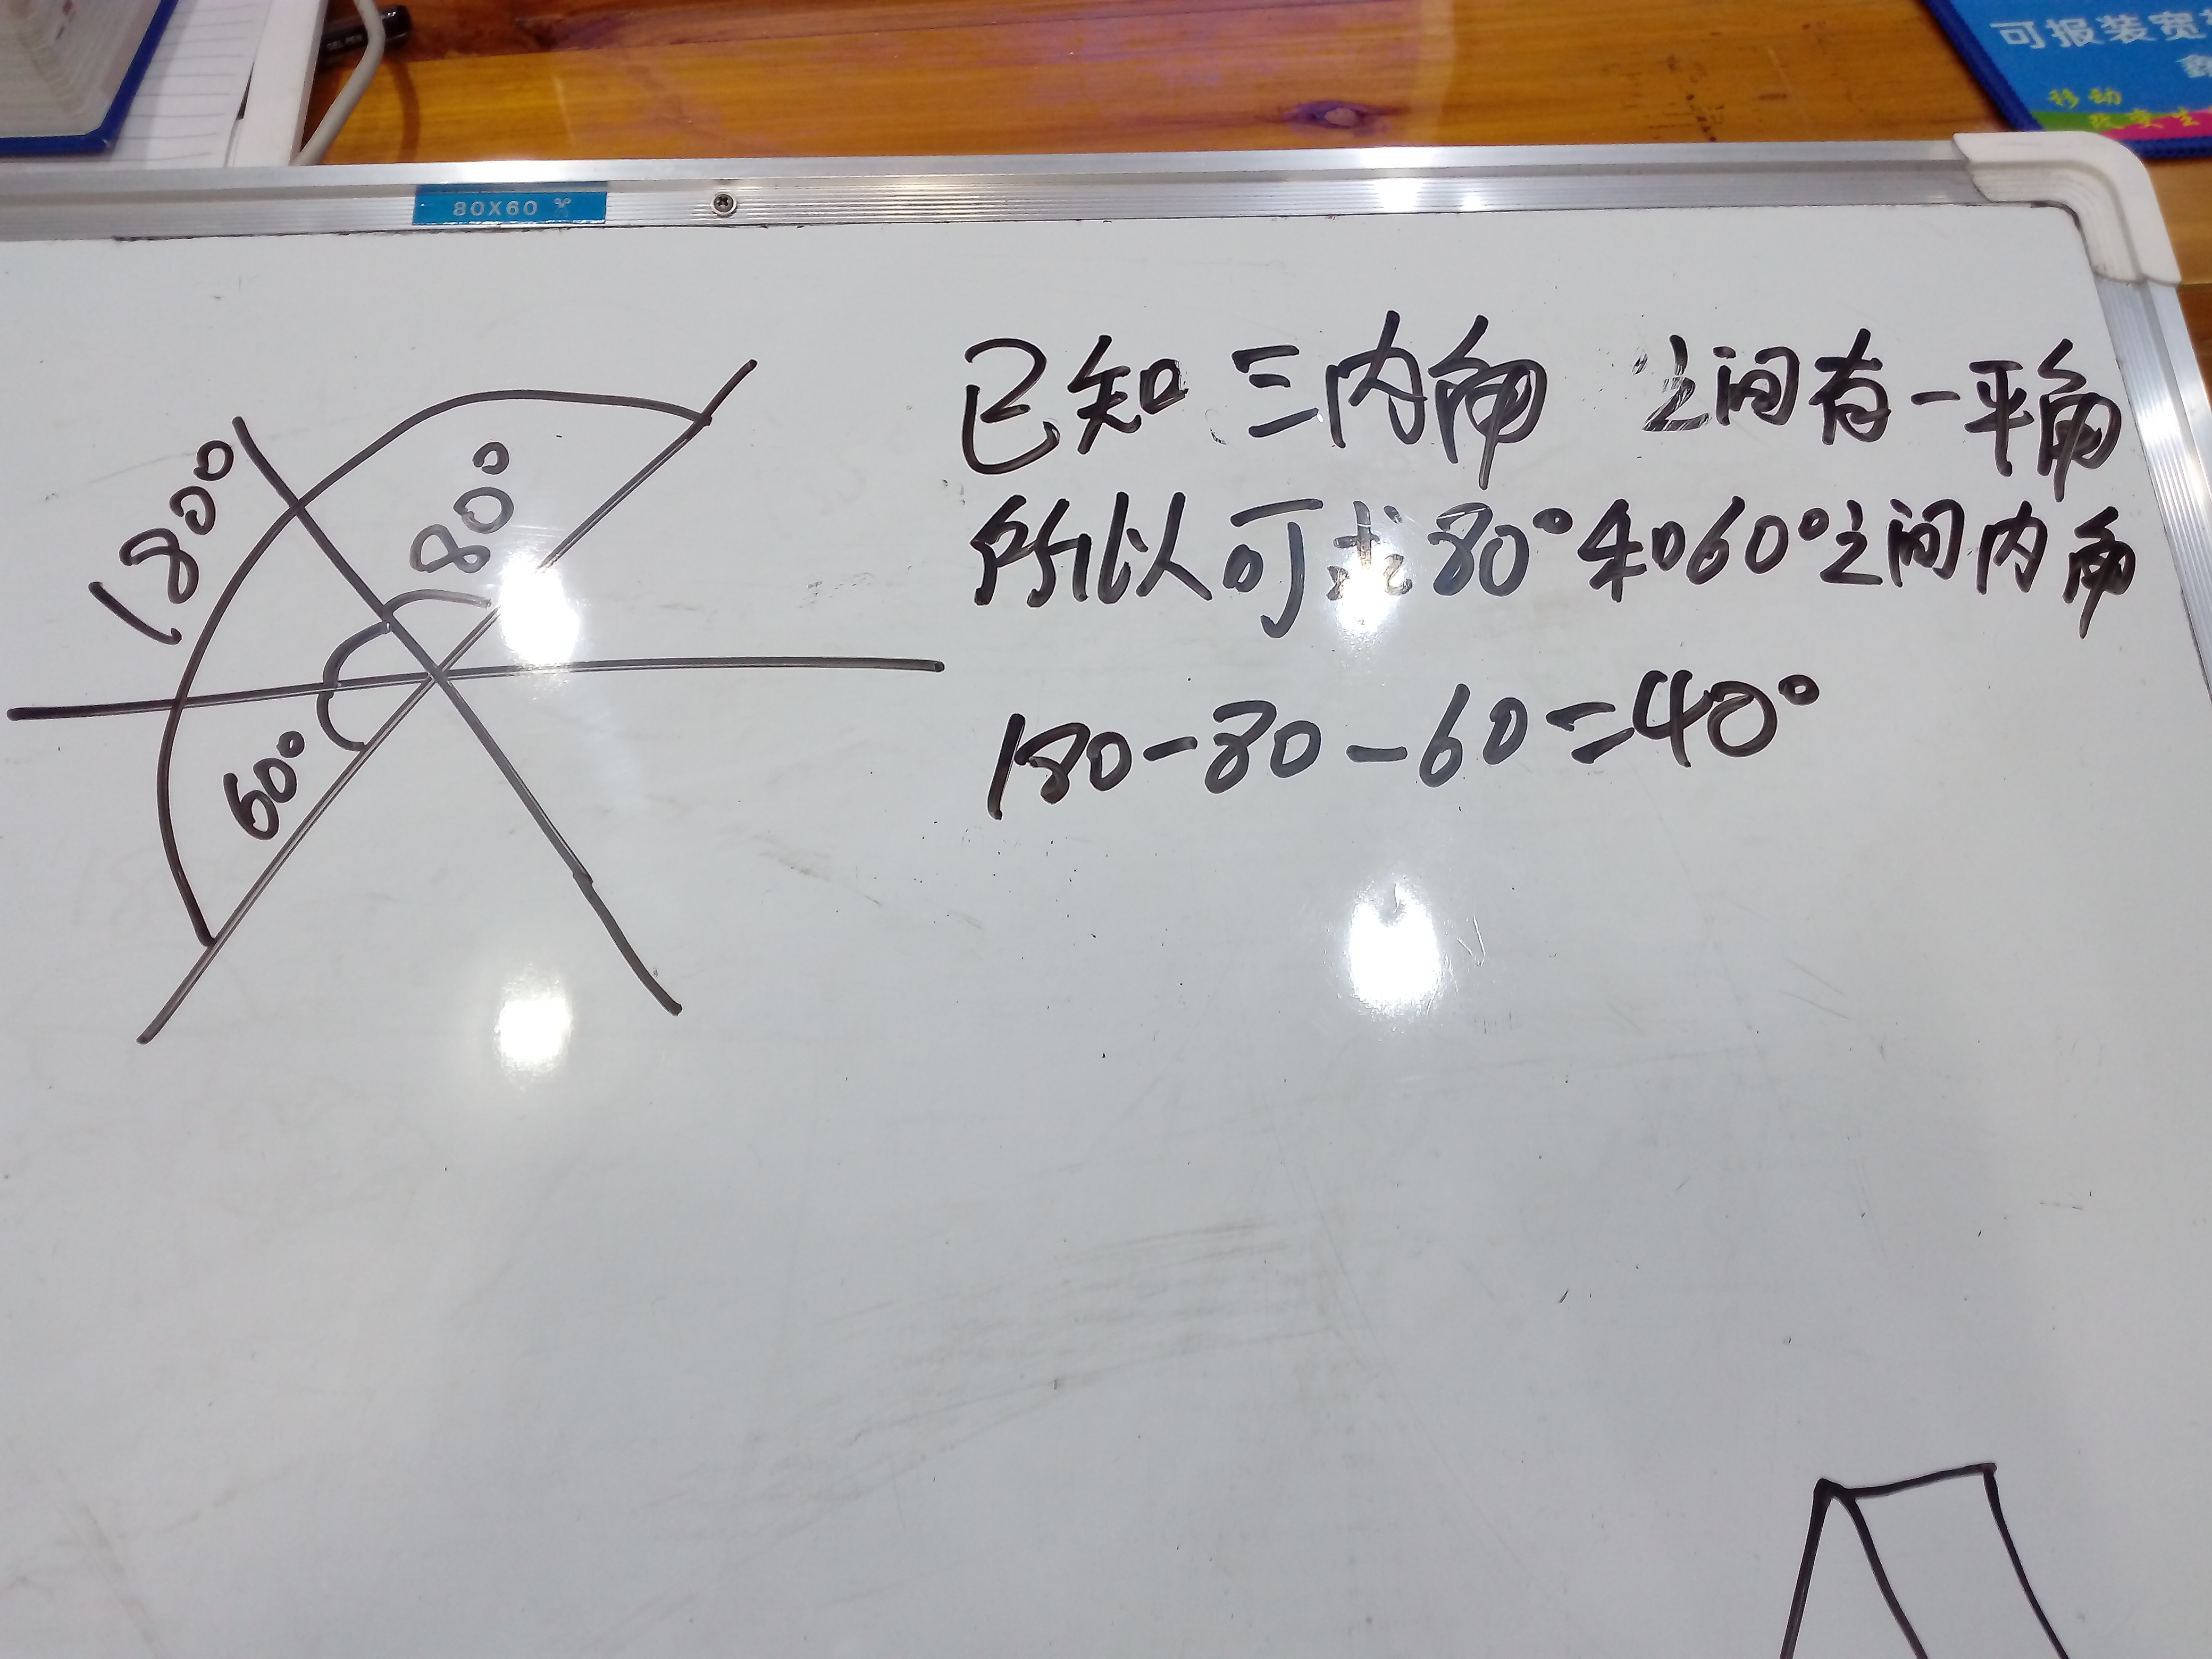 GEL PEN
可报装宽
移动
80X60
180°
80°
60°
已知三内角 之间有一平角
所以可求80°和60°之间内角
180-80-60=40°